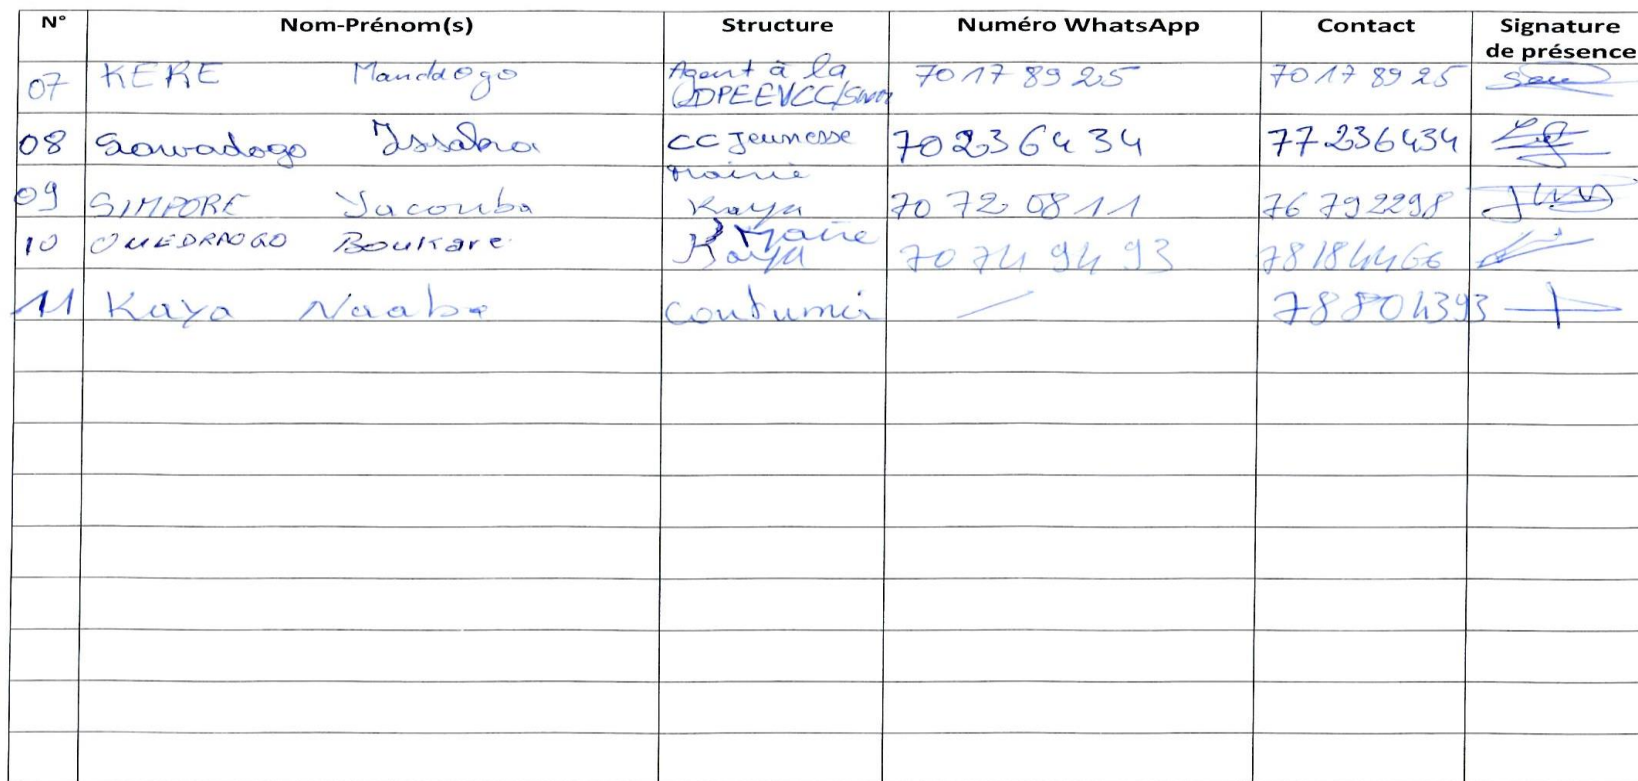 N° Nom-Prénom(s) Structure Numéro WhatsApp Contact Signature
de présence
07 KERE Mandaogo Agent à la 70 17 89 25 70 17 89 25
08 Sawadogo Issaka CC Jeunesse 70236434 77236434
Mairie
09 SIMPORE Yacouba Kaya 70 72 08 11 76 792298
10 OUEDRAOGO Boukare Mairie
Kaya 70 74 94 93 78184466
11 Kaya Naaba coutumier 78804393